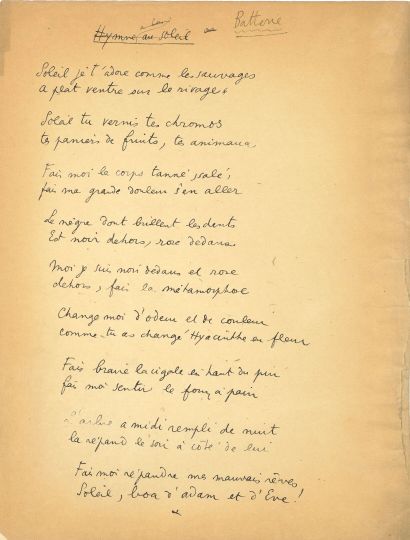 Hymne au soleil — Batterie
Soleil je t'adore comme les sauvages
a plat ventre sur le rivage.
Soleil tu vernis tes chromos
tes paniers de fruits, tes animaux.
Fais moi le corps tanné, salé;
fais ma grande douleur s'en aller
Le nègre dont brillent les dents
Est noir dehors, rose dedans.
Moi je suis noir dedans et rose
dehors, fais la métamorphose
Change moi d'odeur et de couleur
comme tu as changé Hyacinthe en fleur
Fais braire la cigale en haut du pin
fais moi sentir le four à pain
L'arbre a midi rempli de nuit
la répand le soir à côté de lui
Fais moi répandre mes mauvais rêves,
Soleil, boa d'adam et d'Eve!